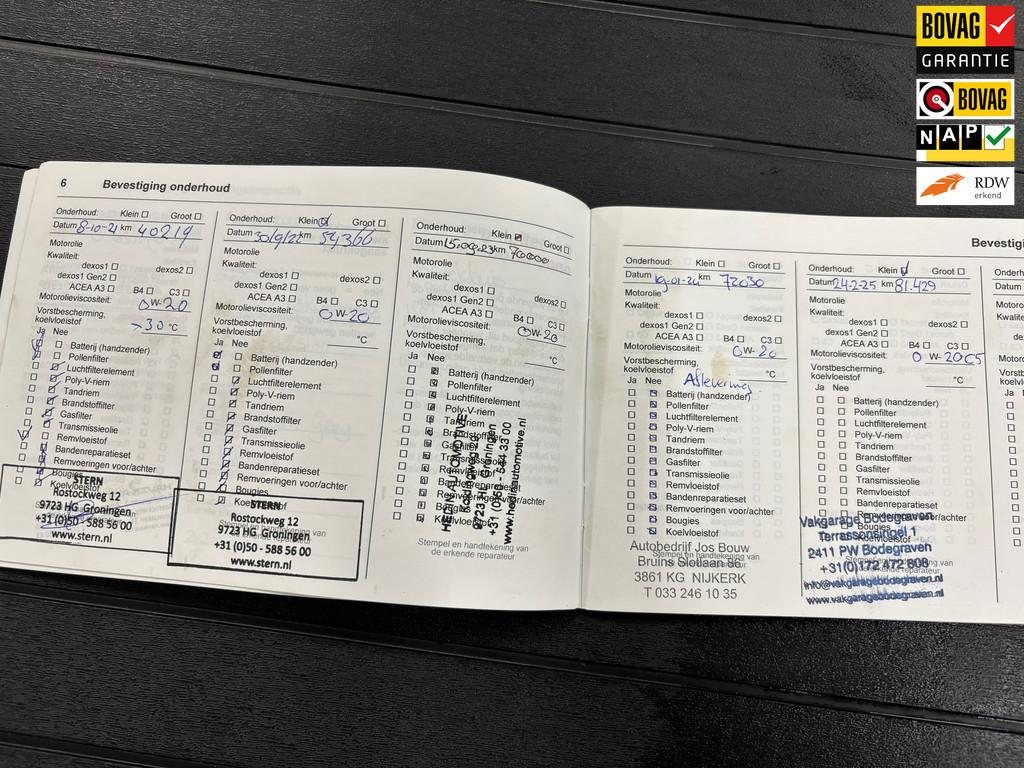 BOVAG
GARANTIE
BOVAG
NAP
RDW
erkend
6 Bevestiging onderhoud
Onderhoud: Klein Groot
Datum 8-10-21 km 40219
Motorolie
Kwaliteit:
dexos1 dexos2
dexos1 Gen2
ACEA A3 B4 C3
Motorolieviscositeit: 0W-20
Vorstbescherming,
koelvloeistof >30 °C
Ja Nee
Batterij (handzender)
Pollenfilter
Luchtfilterelement
Poly-V-riem
Tandriem
Brandstoffilter
Gasfilter
Transmissieolie
Remvloeistof
Bandenreparatieset
Remvoeringen voor/achter
Bougies
Koelvloeistof
STERN
Rostockweg 12
9723 HG Groningen
+31 (0)50 - 588 56 00
www.stern.nl
Onderhoud: Klein Groot
Datum 30/9/22 km 54366
Motorolie
Kwaliteit:
dexos1 dexos2
dexos1 Gen2
ACEA A3 B4 C3
Motorolieviscositeit: 0W-20
Vorstbescherming,
koelvloeistof °C
Ja Nee
Batterij (handzender)
Pollenfilter
Luchtfilterelement
Poly-V-riem
Tandriem
Brandstoffilter
Gasfilter
Transmissieolie
Remvloeistof
Bandenreparatieset
Remvoeringen voor/achter
Bougies
Koelvloeistof
STERN
Rostockweg 12
9723 HG Groningen
+31 (0)50 - 588 56 00
www.stern.nl
Onderhoud: Klein Groot
Datum 15-09-23 km 70000
Motorolie
Kwaliteit:
dexos1 dexos2
dexos1 Gen2
ACEA A3 B4 C3
Motorolieviscositeit: 0W-20
Vorstbescherming,
koelvloeistof °C
Ja Nee
Batterij (handzender)
Pollenfilter
Luchtfilterelement
Poly-V-riem
Tandriem
Brandstoffilter
Gasfilter
Transmissieolie
Remvloeistof
Bandenreparatieset
Remvoeringen voor/achter
Bougies
Koelvloeistof
AUTOMOTIVE
Groningen
+31 (0)50 - 544 33 00
www.hedinautomotive.nl
Stempel en handtekening van
de erkende reparateur
Bevestigi
Onderhoud: Klein Groot
Datum 19-01-24 km 72030
Motorolie
Kwaliteit:
dexos1 dexos2
dexos1 Gen2
ACEA A3 B4 C3
Motorolieviscositeit: 0W-20
Vorstbescherming,
koelvloeistof °C
Ja Nee Aflevering
Batterij (handzender)
Pollenfilter
Luchtfilterelement
Poly-V-riem
Tandriem
Brandstoffilter
Gasfilter
Transmissieolie
Remvloeistof
Bandenreparatieset
Remvoeringen voor/achter
Bougies
Koelvloeistof
Autobedrijf Jos Bouw
Bruins Slotlaan 86
3861 KG NIJKERK
T 033 246 10 35
Onderhoud: Klein Groot
Datum 24-2-25 km 81.429
Motorolie
Kwaliteit:
dexos1 dexos2
dexos1 Gen2
ACEA A3 B4 C3
Motorolieviscositeit: 0 W-20C5
Vorstbescherming,
koelvloeistof °C
Ja Nee
Batterij (handzender)
Pollenfilter
Luchtfilterelement
Poly-V-riem
Tandriem
Brandstoffilter
Gasfilter
Transmissieolie
Remvloeistof
Bandenreparatieset
Remvoeringen voor/achter
Bougies
Koelvloeistof
Vakgarage Bodegraven
Terrassonsingel 1
2411 PW Bodegraven
+31(0)172 472 808
info@vakgaragebodegraven.nl
www.vakgaragebodegraven.nl
Onderh
Datum
Motoro
Kwalite
Motor
Vorst
koelv
Ja